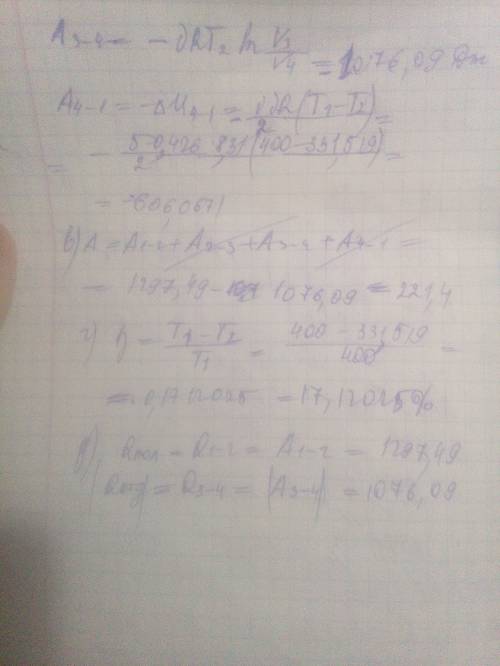 A₃₋₄ = -νRT₂ ln V₃/V₄ = 1076,09 Дж
A₄₋₁ = -ΔU₄₋₁ = i/2 νR(T₁-T₂) =
= - 5·0,426·8,31(400-331,519)/2 =
= -606,0671
в) A = A₁₋₂ + A₂₋₃ + A₃₋₄ + A₄₋₁ =
= 1297,49 - 1076,09 = 221,4
г) η = T₁-T₂/T₁ = 400-331,519/400 =
= 0,1712025 = 17,12025%
д) Qпол = Q₁₋₂ = A₁₋₂ = 1297,49
Qотд = Q₃₋₄ = |A₃₋₄| = 1076,09